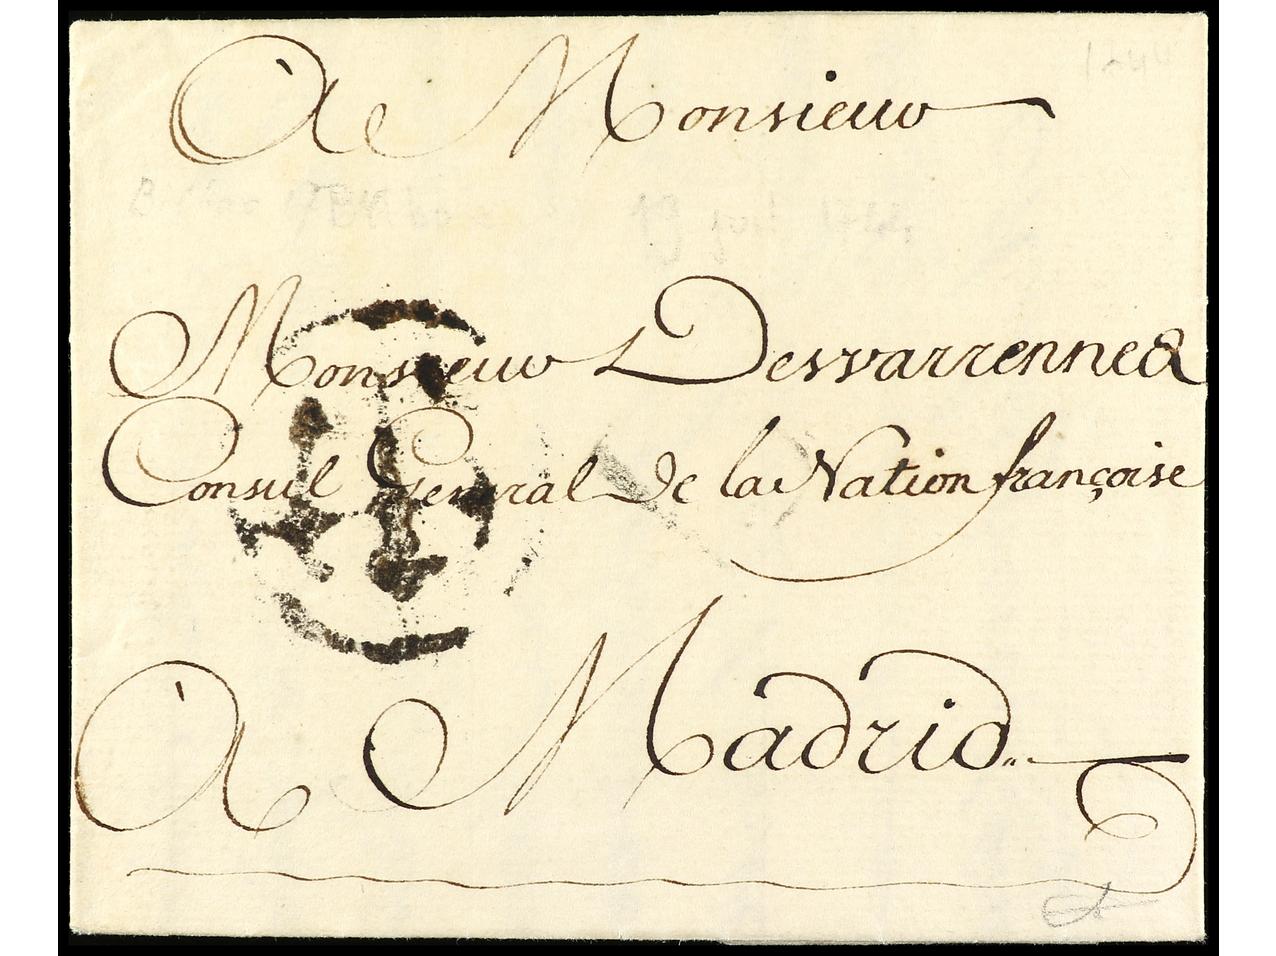 A Monsieur
Monsieur Desvarrennes
Consul General De la Nation françoise
À Madrid